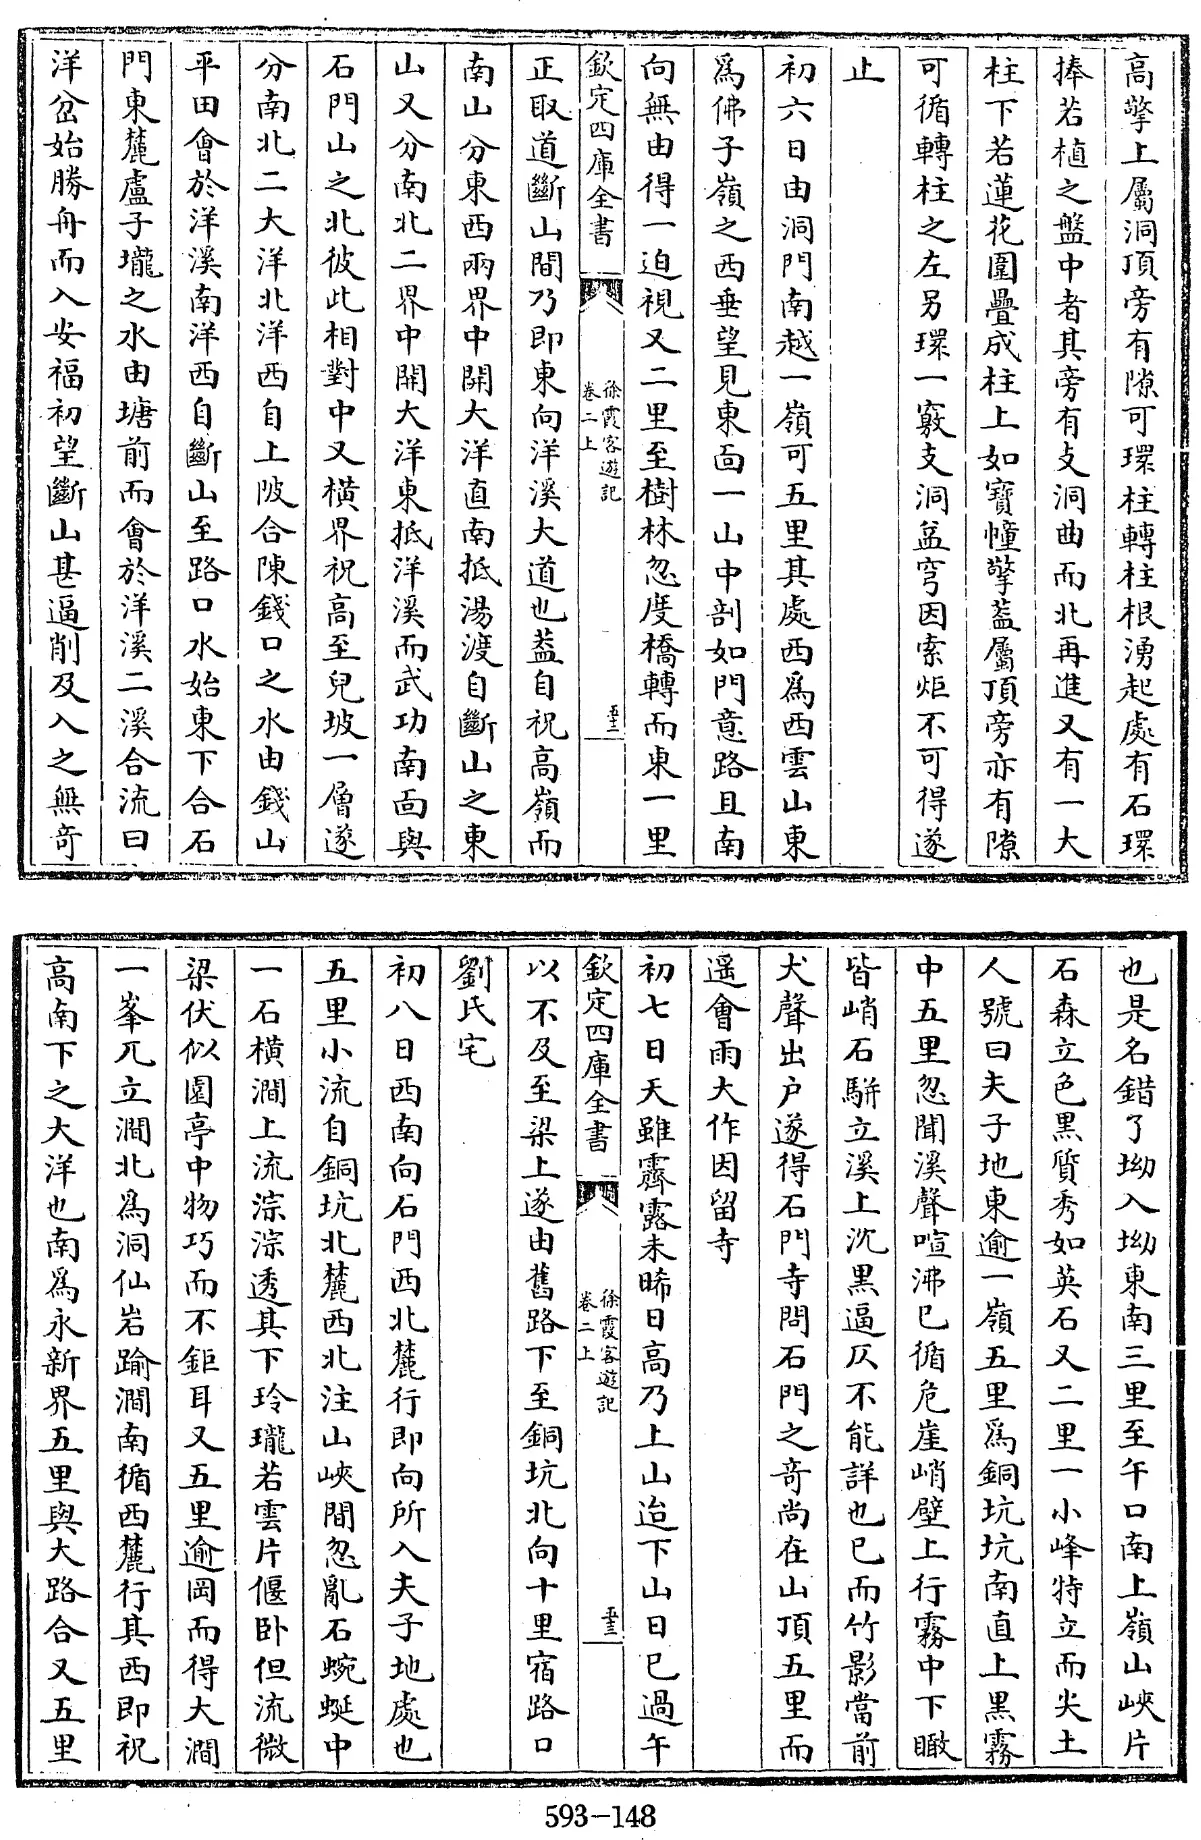 高擎上屬洞頂旁有隙可環柱轉柱根湧起處有石環
捧若植之盤中者其旁有支洞曲而北再進又有一大
柱下若蓮花圍疊成柱上如寳幢擎葢屬頂旁亦有隙
可循轉柱之左另環一竅支洞益穹因索炬不可得遂
止
初六日由洞門南越一嶺可五里其處西爲西雲山東
爲佛子嶺之西垂望見東面一山中剖如門意路且南
向無由得一迫視又二里至樹林忽度橋轉而東一里
欽定四庫全書
徐霞客遊記
卷二上
五十二
正取道斷山間乃即東向洋溪大道也葢自祝高嶺而
南山分東西兩界中開大洋直南抵湯渡自斷山之東
山又分南北二界中開大洋東抵洋溪而武功南面與
石門山之北彼此相對中又横界祝高至兒坡一層遂
分南北二大洋北洋西自上陂合陳錢口之水由錢山
平田會於洋溪南洋西自斷山至路口水始東下合石
門東麓盧子壠之水由塘前而會於洋溪二溪合流曰
洋岔始勝舟而入安福初望斷山甚逼削及入之無奇
也是名錯了坳入坳東南三里至午口南上嶺山峽片
石森立色黑質秀如英石又二里一小峰特立而尖土
人號曰夫子地東逾一嶺五里爲銅坑坑南直上黑霧
中五里忽聞溪聲喧沸已循危崖峭壁上行霧中下瞰
皆峭石駢立溪上沈黑逼仄不能詳也已而竹影當前
犬聲出户遂得石門寺問石門之奇尚在山頂五里而
遥會雨大作因留寺
初七日天雖霽露未晞日高乃上山迨下山日已過午
欽定四庫全書
徐霞客遊記
卷二上
五十三
以不及至梁上遂由舊路下至銅坑北向十里宿路口
劉氏宅
初八日西南向石門西北麓行即向所入夫子地處也
五里小流自銅坑北麓西北注山峽間忽亂石蜿蜒中
一石横澗上流淙淙透其下玲瓏若雲片偃卧但流微
梁伏似園亭中物巧而不鉅耳又五里逾岡而得大澗
一峯兀立澗北爲洞仙岩踰澗南循西麓行其西即祝
高南下之大洋也南爲永新界五里與大路合又五里
593-148